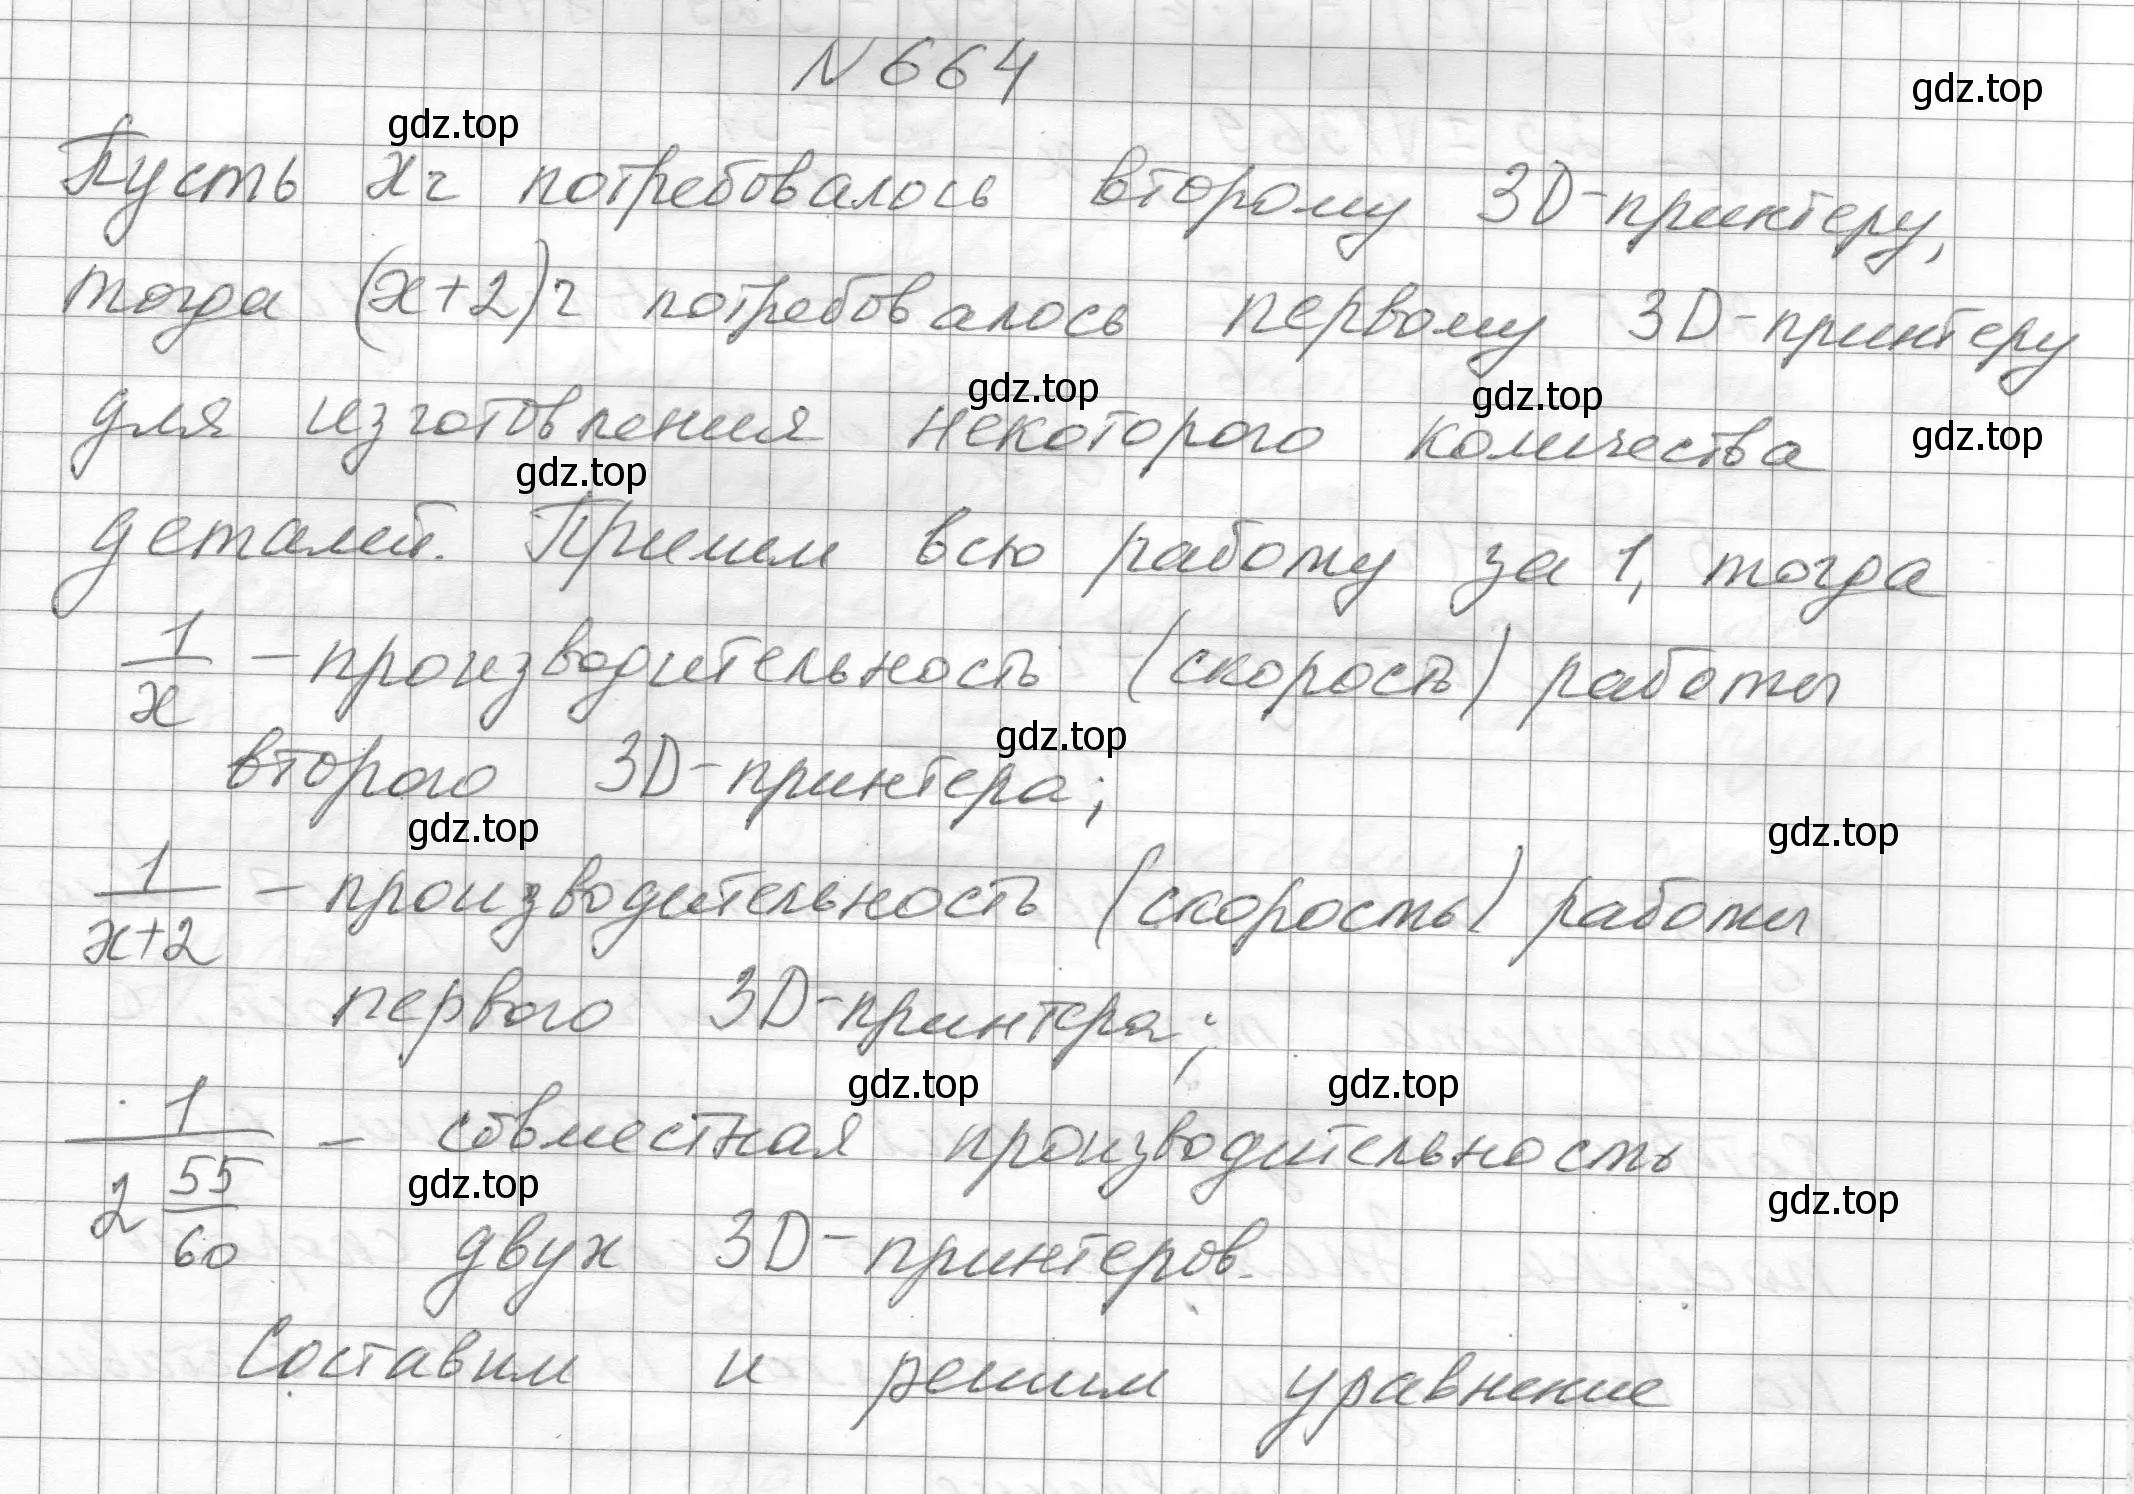 N 664
gdz.top
gdz.top
Пусть x ч потребовалось второму 3D-принтеру,
тогда (x+2) ч потребовалось первому 3D-принтеру
gdz.top gdz.top
для изготовления некоторого количества
gdz.top
gdz.top
деталей. Примем всю работу за 1, тогда
1/x – производительность (скорость) работы
gdz.top
второго 3D-принтера;
gdz.top gdz.top
1/(x+2) – производительность (скорость) работы
первого 3D-принтера;
gdz.top gdz.top
1/(2 55/60) – совместная производительность
gdz.top gdz.top
двух 3D-принтеров.
Составим и решим уравнение